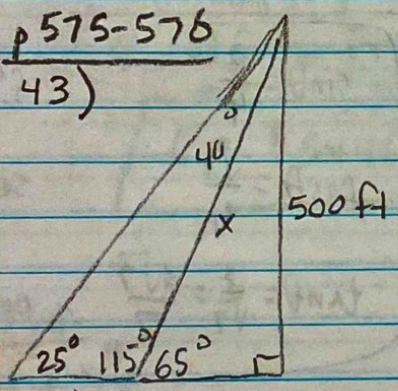 p 575-576
43)
40°
500 ft
x
25° 115° 65°